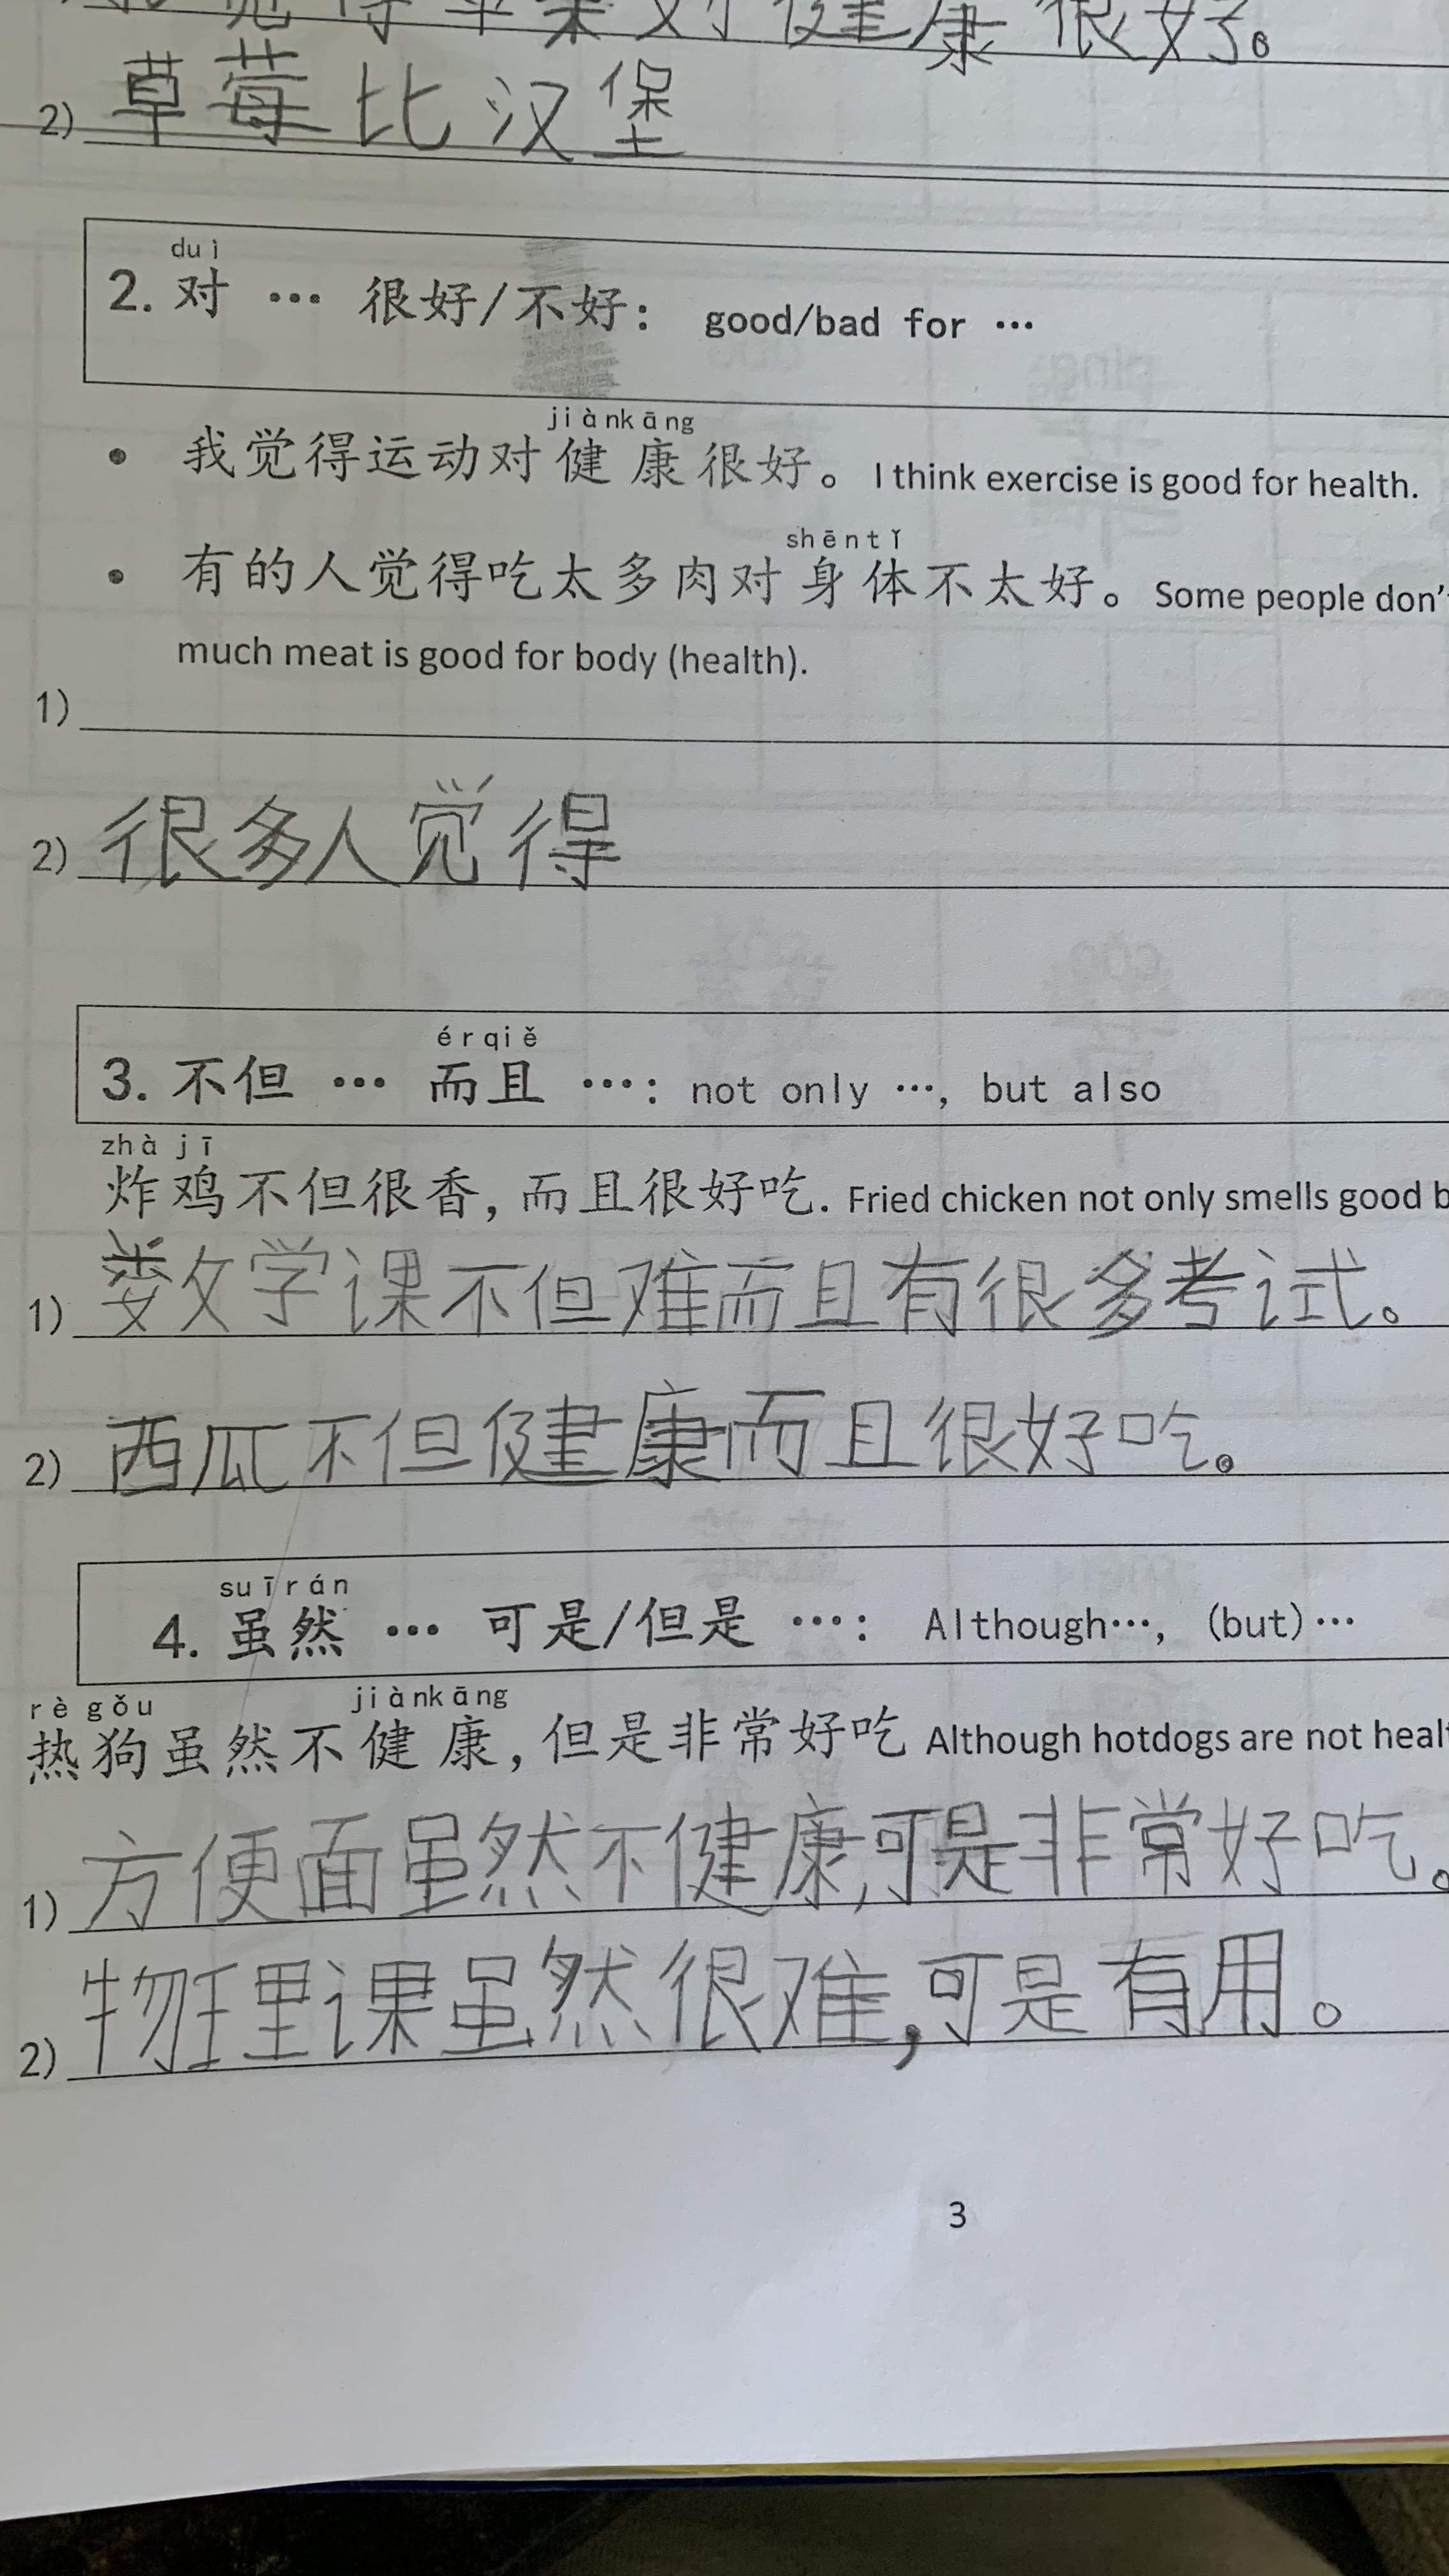 觉得苹果对健康很好。
2) 草莓比汉堡
duì
2. 对 … 很好/不好: good/bad for …
jiànkāng
• 我觉得运动对健康很好。I think exercise is good for health.
shēntǐ
• 有的人觉得吃太多肉对身体不太好。Some people don't
much meat is good for body (health).
1)
2) 很多人觉得
érqiě
3. 不但 … 而且 …: not only …, but also
zhà jī
炸鸡不但很香, 而且很好吃. Fried chicken not only smells good b
1) 数学课不但难而且有很多考试。
2) 西瓜不但健康而且很好吃。
suīrán
4. 虽然 … 可是/但是 …: Although…, (but)…
rè gǒu jiànkāng
热狗虽然不健康, 但是非常好吃 Although hotdogs are not heal
1) 方便面虽然不健康,可是非常好吃。
2) 物理课虽然很难,可是有用。
3